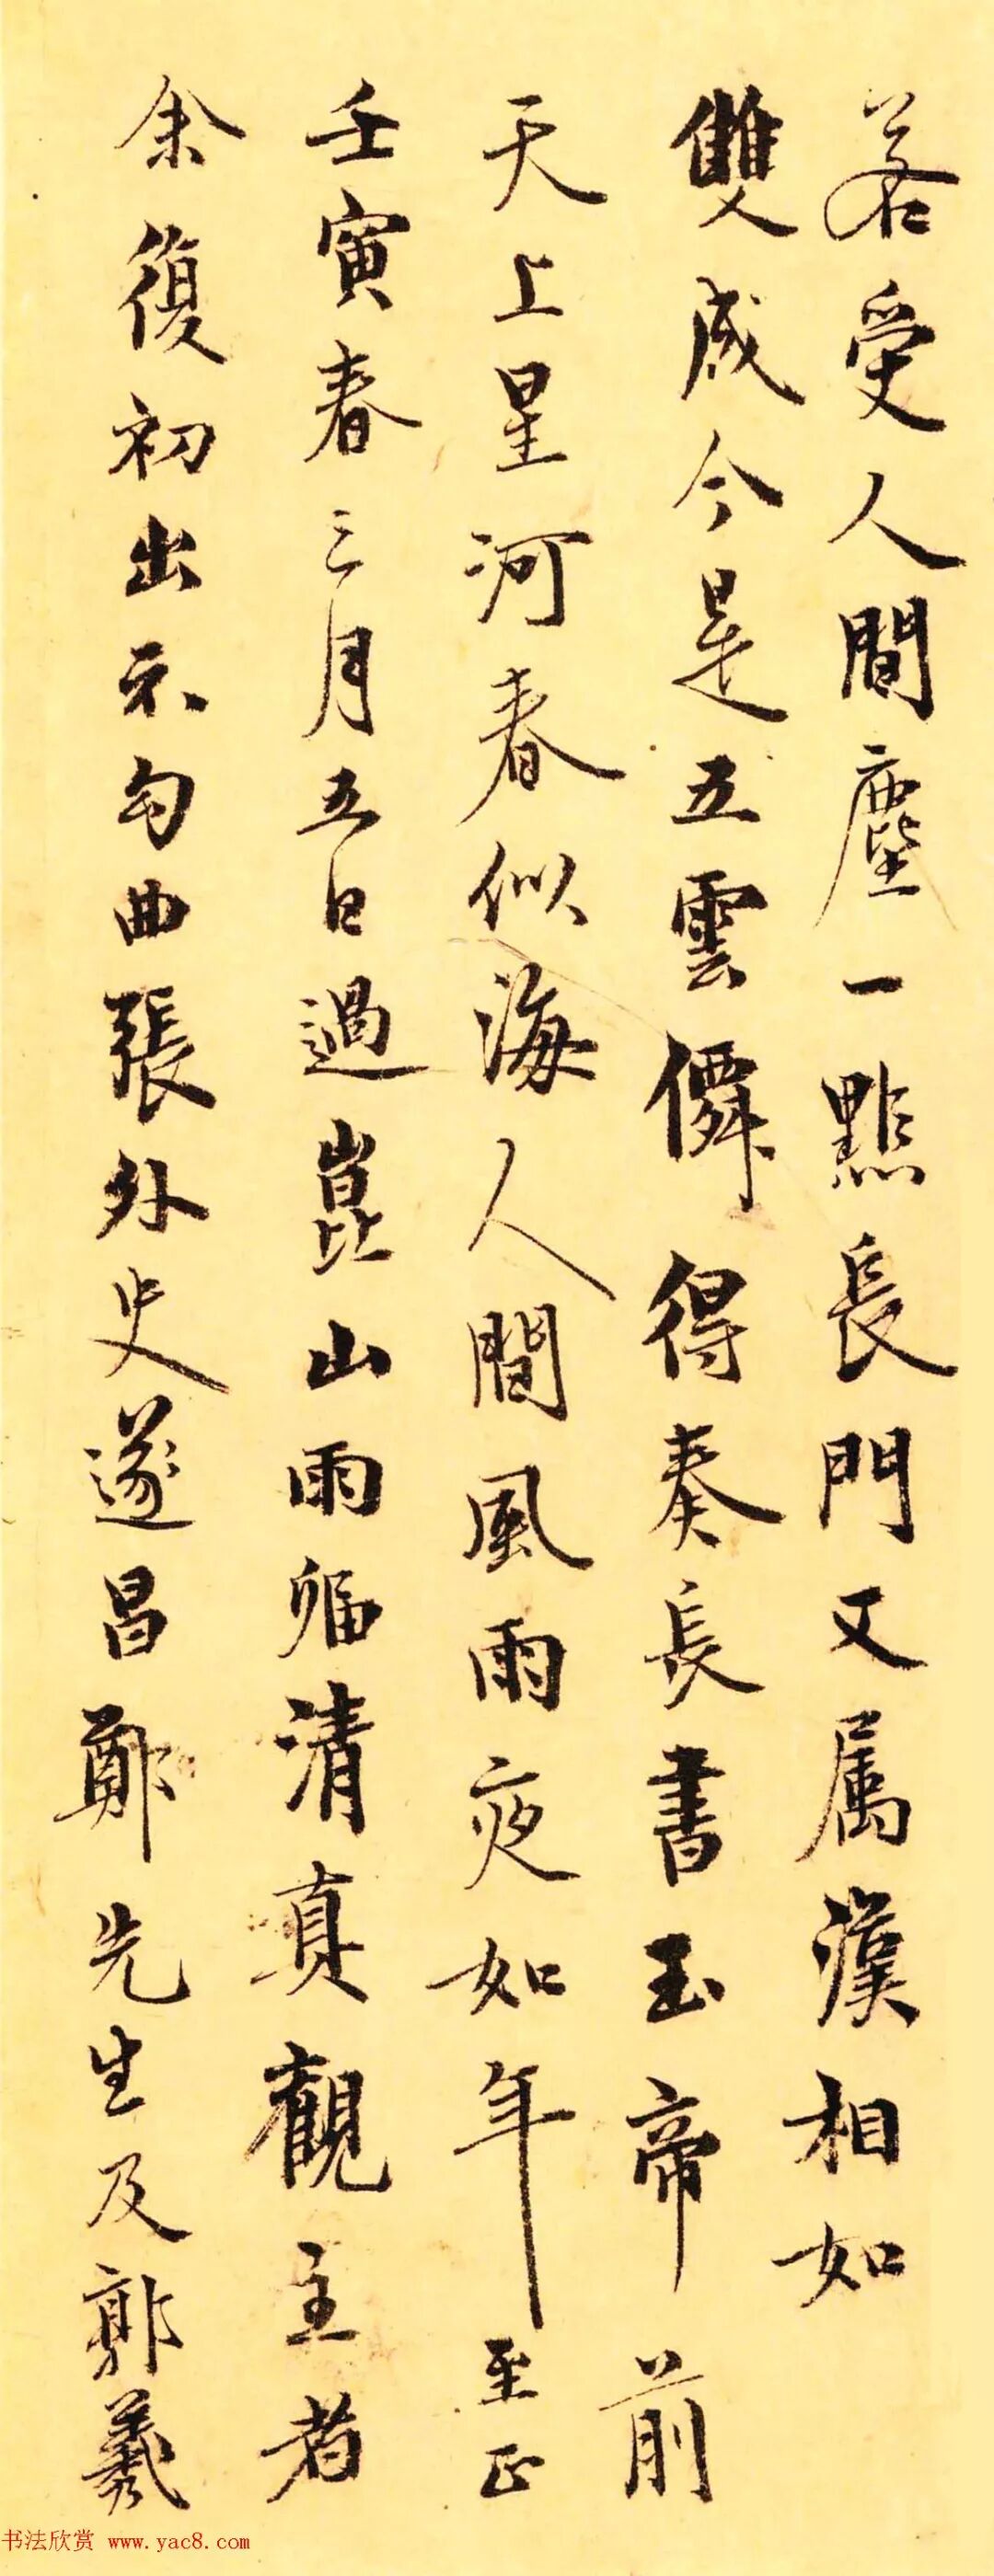 若受人間塵一點長門又属漢相如
雙成今是五雲僊得奏長書玉帝前
天上星河春似海人間風雨夜如年至正
壬寅春三月五日過崑山雨宿清真觀主者
余復初出示句曲張外史遂昌鄭先生及郭羲
书法欣赏 www.yac8.com